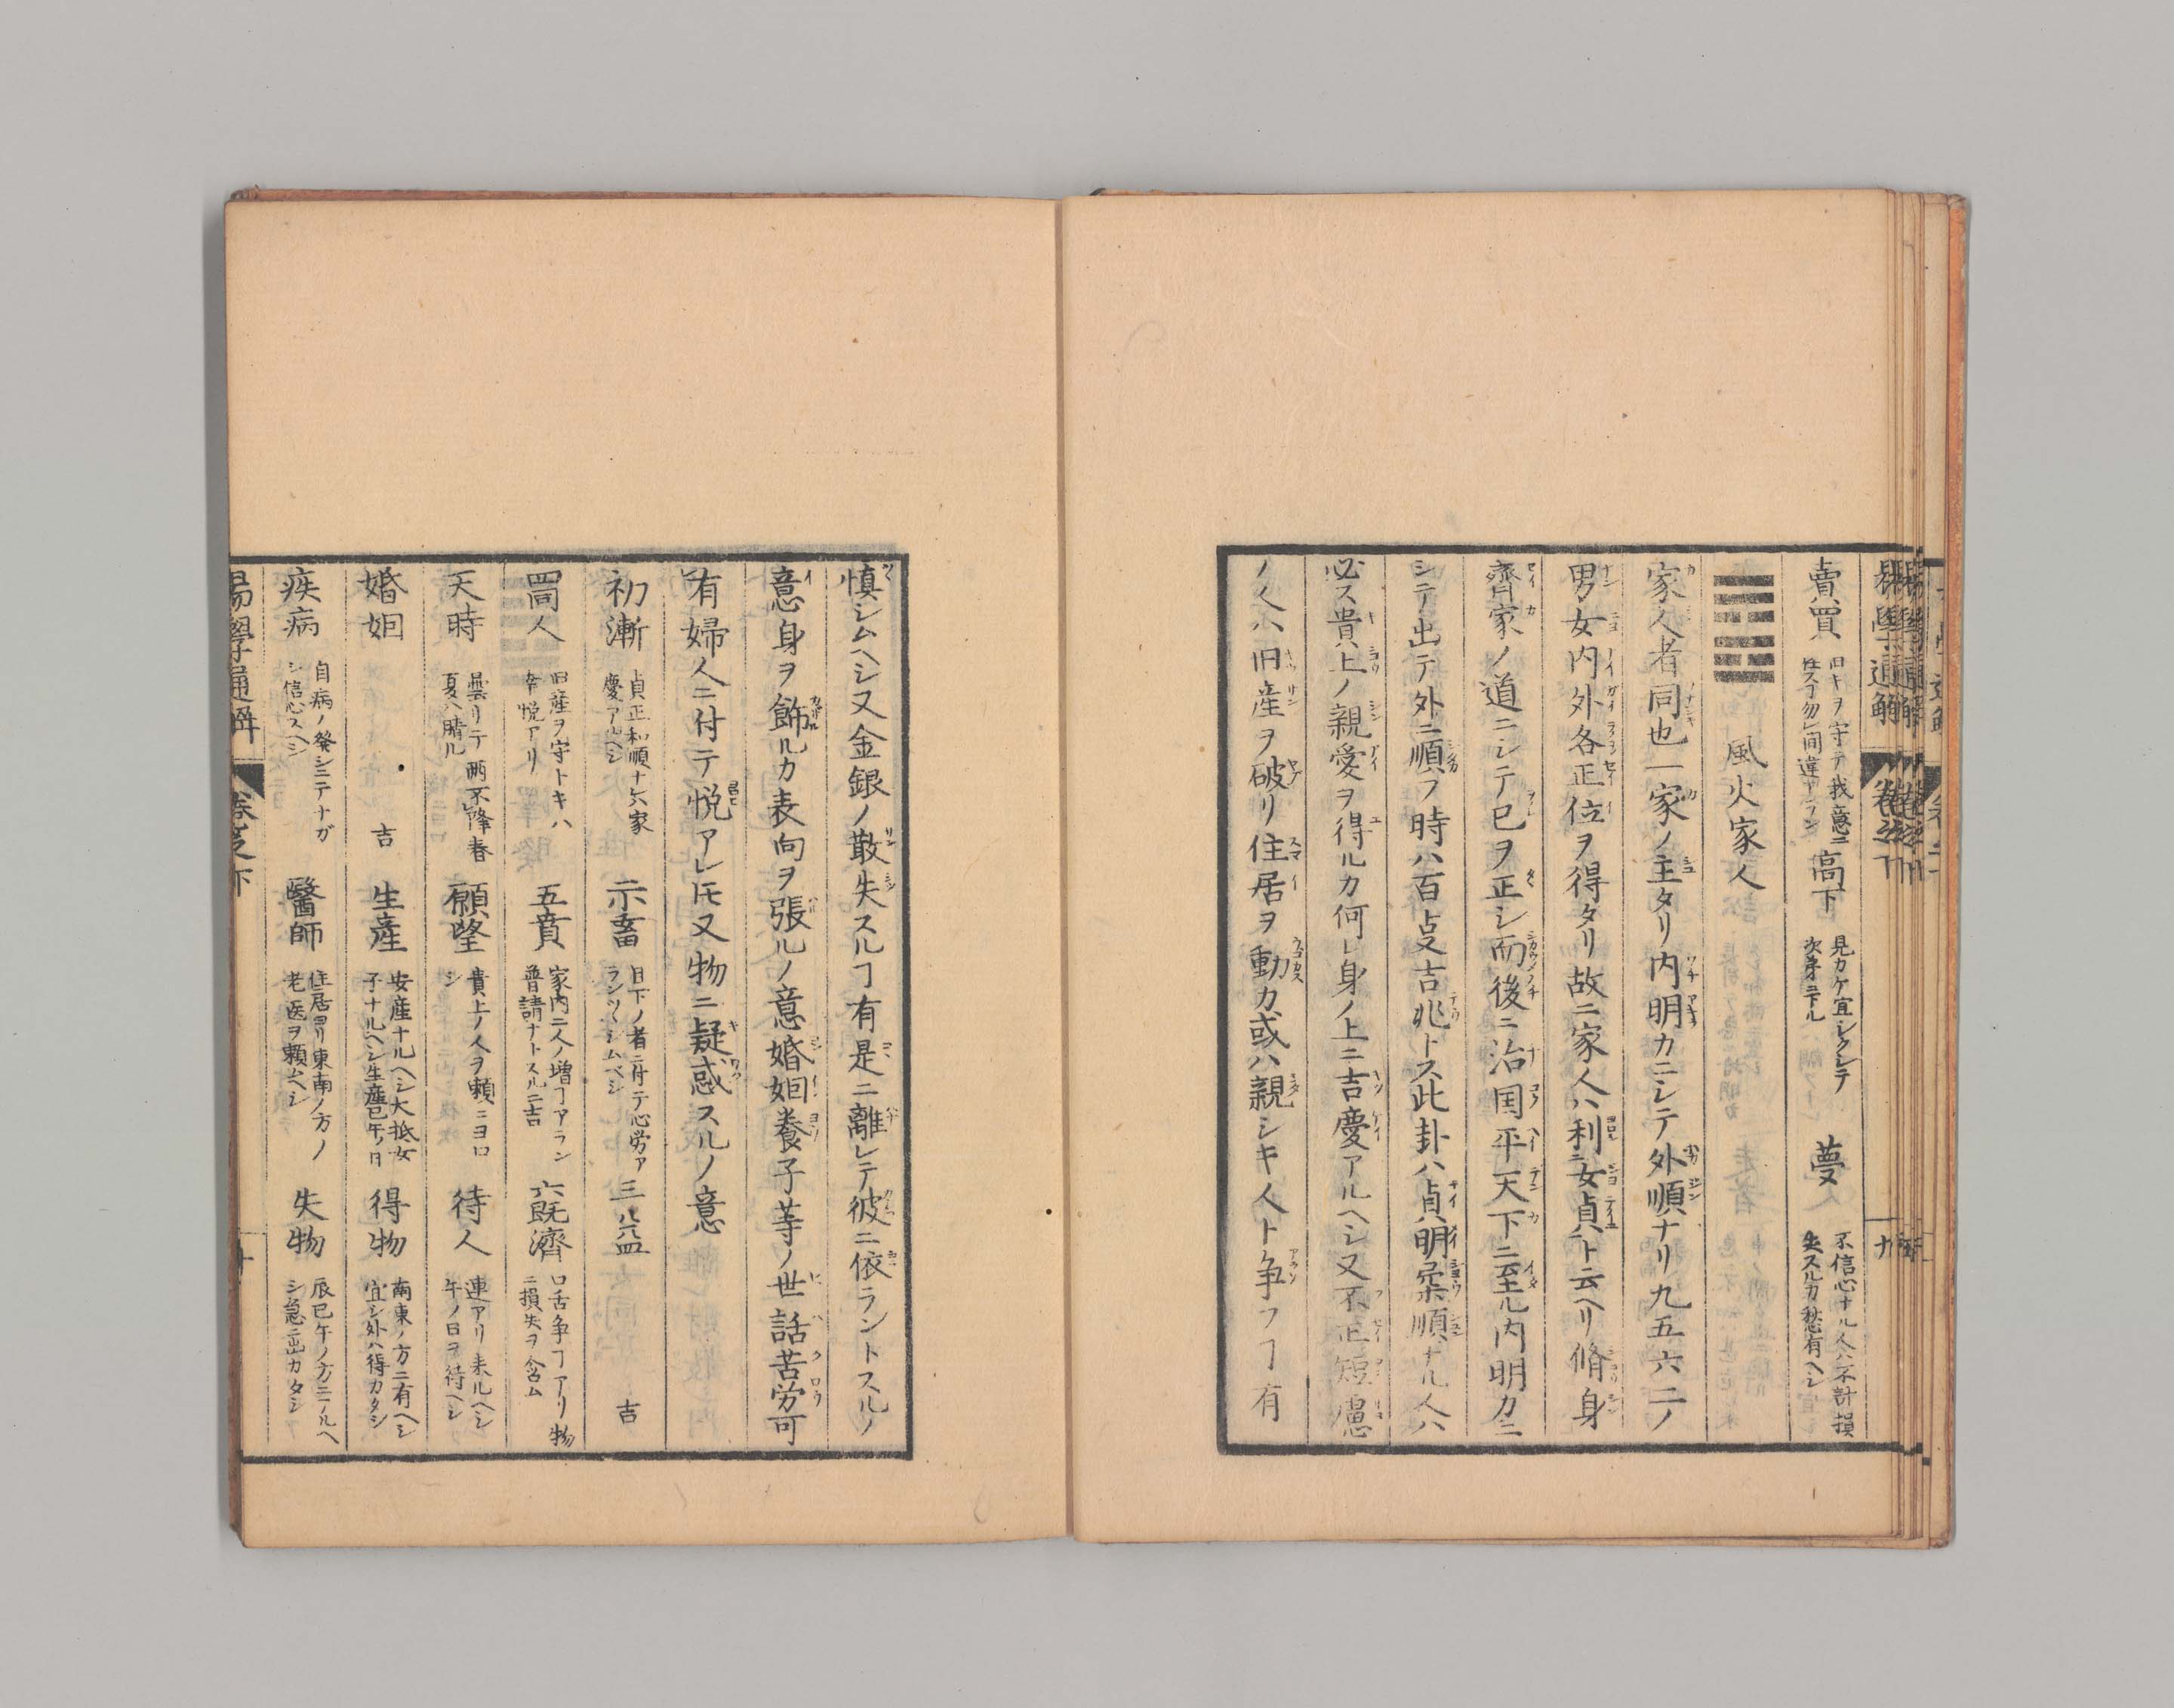 賣買 旧キヲ守テ我意ニ
任ス丁勿レ間違アラン
高下 見カケ宜シクシテ
次第ニ下ル
夢 不信心ナル人ハ不計損
失スルカ愁有ヘシ
風火家人
家人者同也一家ノ主タリ内明カニシテ外順ナリ九五六二ノ
男女内外各正位ヲ得タリ故ニ家人ハ利女貞ト云ヘリ脩身
齊家ノ道ニシテ已ヲ正シ而後ニ治国平天下ニ至ル内明カニ
シテ出テ外ニ順フ時ハ百占吉兆トス此卦ハ貞明柔順ナル人ハ
必ス貴上ノ親愛ヲ得ルカ何レ身ノ上ニ吉慶アルヘシ又不正短慮
ノ人ハ旧産ヲ破リ住居ヲ動カ或ハ親シキ人ト争フヿ有
慎シムヘシ又金銀ノ散失スルヿ有是ニ離レテ彼ニ依ラントスルノ
意身ヲ飾ルカ表向ヲ張ルノ意婚姻養子等ノ世話苦労可
有婦人ニ付テ悦アレ𪜈又物ニ疑惑スルノ意
初漸 貞正和順ナル家
慶アルヘシ
示畜 目下ノ者ニ付テ心労ア
ランツヽシムベシ
三益 吉
四同人 旧産ヲ守トキハ
幸悦アリ
五賁 家内ニ人ノ増ヿアラン
普請ナトスルニ吉
六既濟 口舌争ヿアリ物
ニ損失ヲ含ム
天時 曇リテ雨不降春
夏ハ晴ル
願望 貴上ノ人ヲ頼ニヨロ
シ
待人 連アリ来ルヘシ
午ノ日ヲ待ヘシ
婚姻 吉
生産 安産ナルヘシ大抵女
子ナルヘシ生産巳午ノ日
得物 南東ノ方ニ有ヘシ
宜シ外ハ得カタシ
疾病 自病ノ発シニテナガ
シ信心スヘシ
醫師 住居ヨリ東南ノ方ノ
老医ヲ頼ムヘシ
失物 辰巳午ノ方ニアルヘ
シ急ニ出カタシ
易學通解 巻之下 十